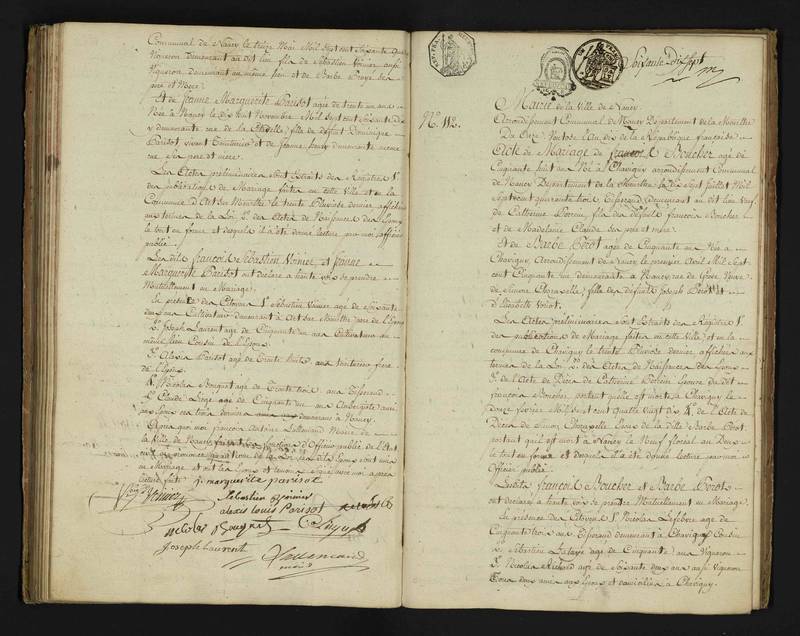 Communal de Nancy le treize Mai Mil Sept cent Soixante quatre
Vigneron demeurant au dit lieu fils de Sébastien Voinier aussi
Vigneron demeurant au même lieu et de Barbe
père et Mère
Et de Jeanne Marguerite Parisot agée de trente un ans
Née à Nancy le dix huit Novembre Mil Sept cent Soixante dix
y demeurante rue de la Citadelle, fille de défunt Dominique
Parisot vivant Teinturier et de Jeanne Henry demeurante meme
rue ses père et mere
Les Actes préliminaires sont Extraits des Registres 1°
des publications de Mariage faites en cette Ville et en la
Commune d'Art sur Meurthe le trente Pluviose dernier affichées
aux termes de la Loi 2° des Actes de Naissances des Epoux
le tout en forme et desquels il a été donné lecture par moi officier
public
Les dits francois Sébastien Voinier et Jeanne
Marguerite Parisot ont déclaré à haute voix se prendre
Mutuellement en Mariage
En présence des Citoyens 1° Sébastien Voinier agé de Soixante
deux ans Cultivateur demeurant à Art sur Meurthe, père de l'Epoux
2° Joseph Laurent agé de Cinquante un ans Cultivateur au
même lieu Cousin de l'Epoux
3° Alexis Parisot agé de Trente huit ans teinturier frere
de l'Epouse
4° Nicolas Bouquet agé de Trente trois ans Tisserand
5° Claude agé de Cinquante un ans Aubergiste amis
des Epoux ces trois derniers demeurans à Nancy
Après quoi moi françois Antoine Lallemand Maire de
la Ville de Nancy faisant les fonctions d'Officier public de l'Etat
civil ai prononcé qu'au nom de la Loi les dits Epoux sont unis
en Mariage et ont les Epoux et temoins signé avec moi après
lecture faite J. marguerite parisot
Voinier
Sebastien voinier
alexis louis Parisot
nicolas Bouquet
Joseph Laurent
Lallemand
maire
Soixante Dix Sept
N°. 112.
Mairie de la Ville de Nancy
Arrondissement Communal de Nancy Département de la Meurthe
Du Onze Ventose l'An dix de la République française
Acte de Mariage de francois Boucher agé de
Cinquante huit ans Né à Chavigny arrondissement Communal
de Nancy Département de la Meurthe le dix Sept Juillet Mil
Sept cent quarante trois Tisserand demeurant au dit lieu Veuf
de Catherine Poirson fils des defunts francois Boucher
et de Madelaine Claude ses père et mère
Et de Barbe Perot agée de Cinquante ans Née à
Chavigny, Arrondissement de Nancy le premier Avril Mil Sept
cent Cinquante un demeurante à Nancy, rue de Grève Veuve
de Simon Chapazelle, fille des défunts Joseph Perot et
d'Elisabeth
Les Actes préliminaires sont Extraits des Registres 1°
des publications de Mariage faites en cette Ville et en la
commune de Chavigny le trente Pluviose dernier affichées aux
termes de la Loi 2° des Actes de Naissances des Epoux
3° de l'Acte de Décès de Catherine Poirson Epouse du dit
françois Boucher, portant qu'elle est morte à Chavigny le
douze Février Mil Sept cent quatre vingt dix 4° de l'Acte de
Décès de Simon Chapazelle Epoux de la dite Barbe Perot
portant qu'il est mort à Nancy le Neuf floréal an Deux
le tout en forme et desquels il a été donné lecture par moi
Officier public
Lesdits francois Boucher et Barbe Perot
ont déclaré à haute voix se prendre Mutuellement en Mariage
En présence des Citoyens 1° Nicolas Lefebvre agé de
Cinquante trois ans Tisserand demeurant à Chavigny Cousin
2° Sébastien agé de Cinquante ans Vigneron
3° Nicolas Richard agé de Soixante deux ans aussi Vigneron
Tous deux amis aux Epoux et domiciliés à Chavigny